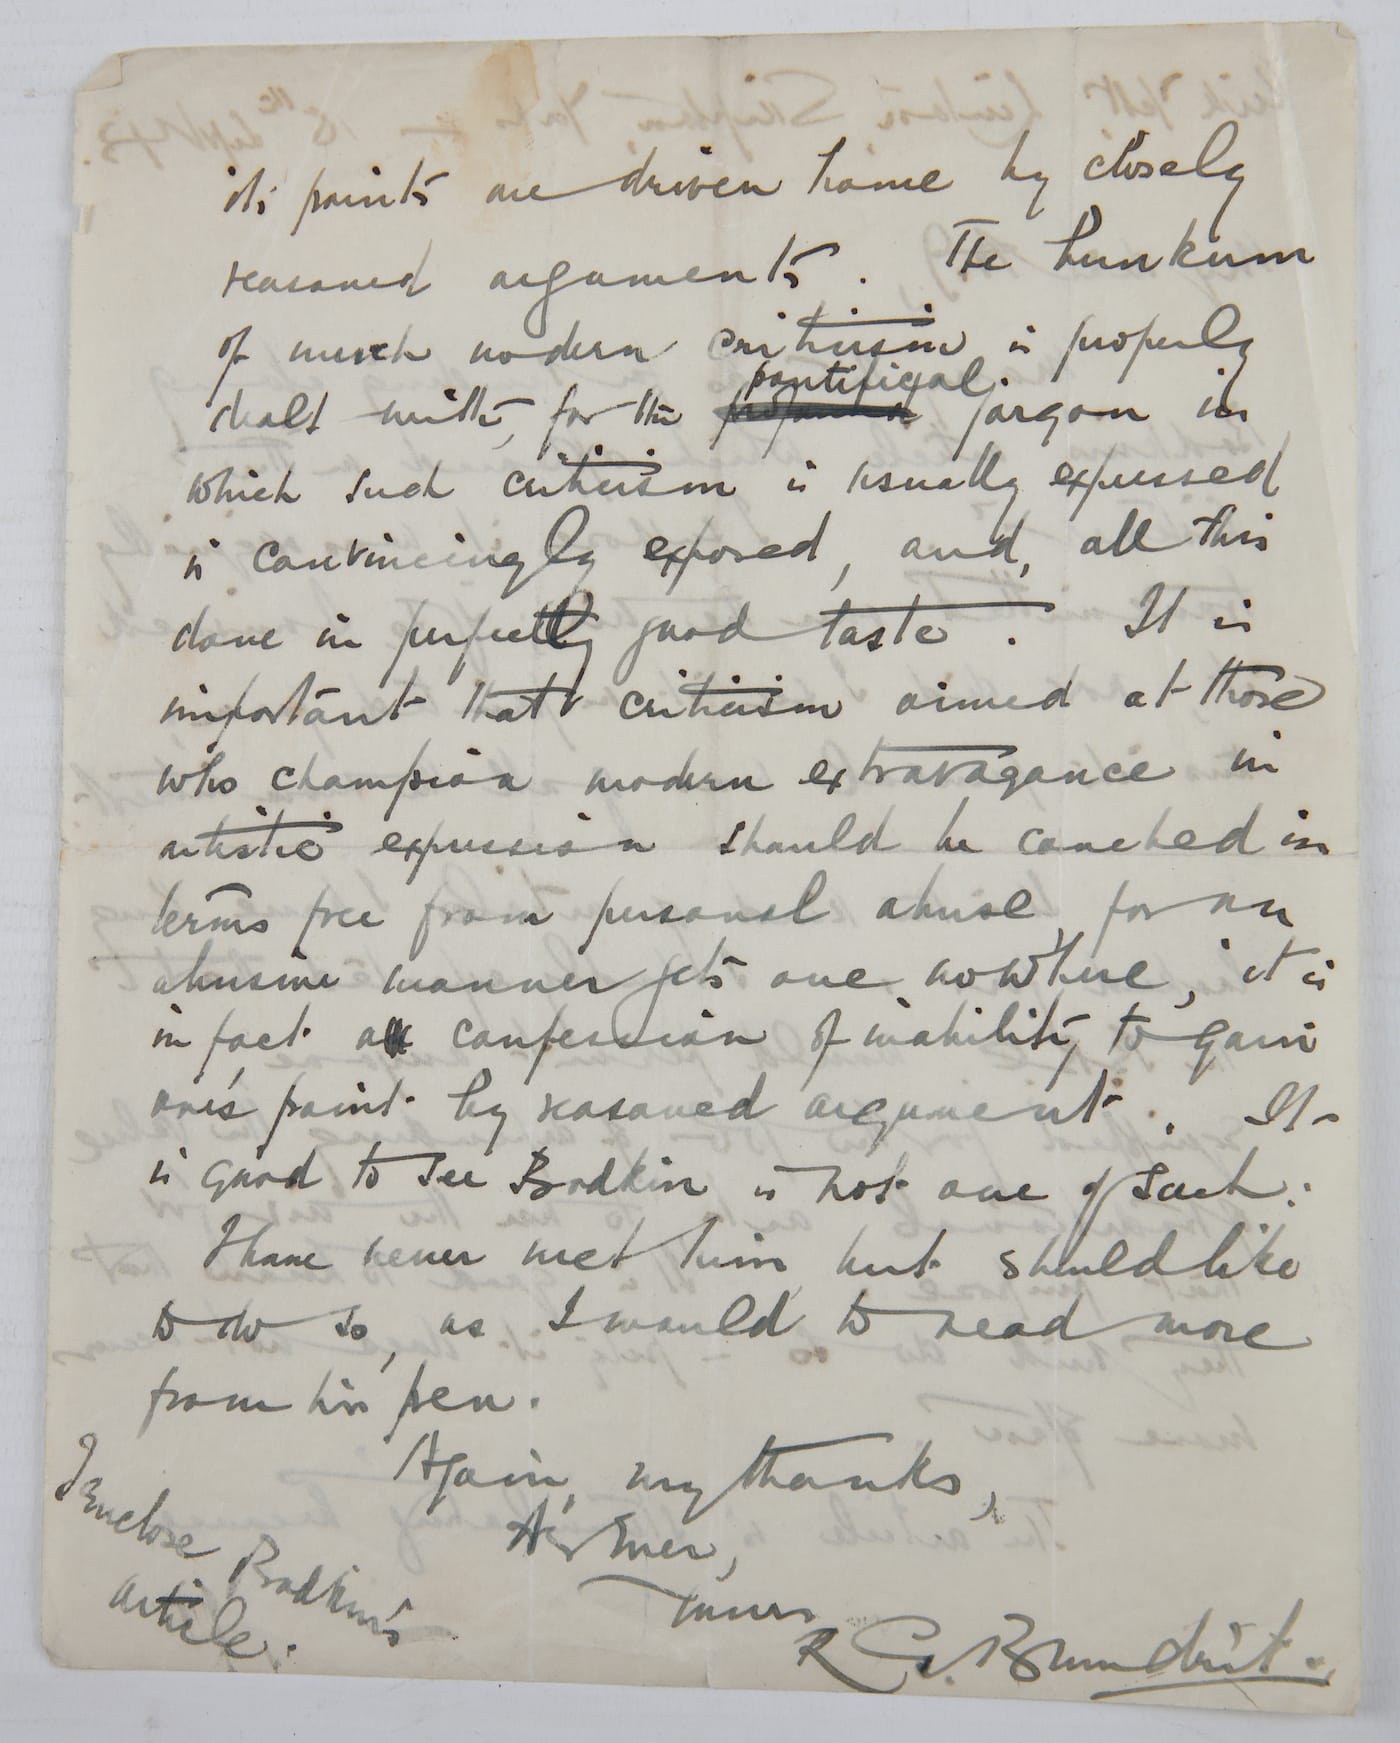 its points are driven home by closely
reasoned arguments. The bunkum
of much modern criticism is properly
pontifical
dealt with, for the jargon in
which such criticism is usually expressed
is convincingly exposed, and, all this
done in perfectly good taste. It is
important that criticism aimed at those
who champion modern extravagance in
artistic expression should be couched in
terms free from personal abuse, for an
abusive manner gets one nowhere, it is
in fact a confession of inability to gain
one's point by reasoned argument. It
is good to see Bodkin is not one of such.
I have never met him but should like
to do so, as I would to read more
from his pen.
Again, my thanks,
As Ever,
Yours
R G. Brundrit.
I enclose Bodkin's
article.